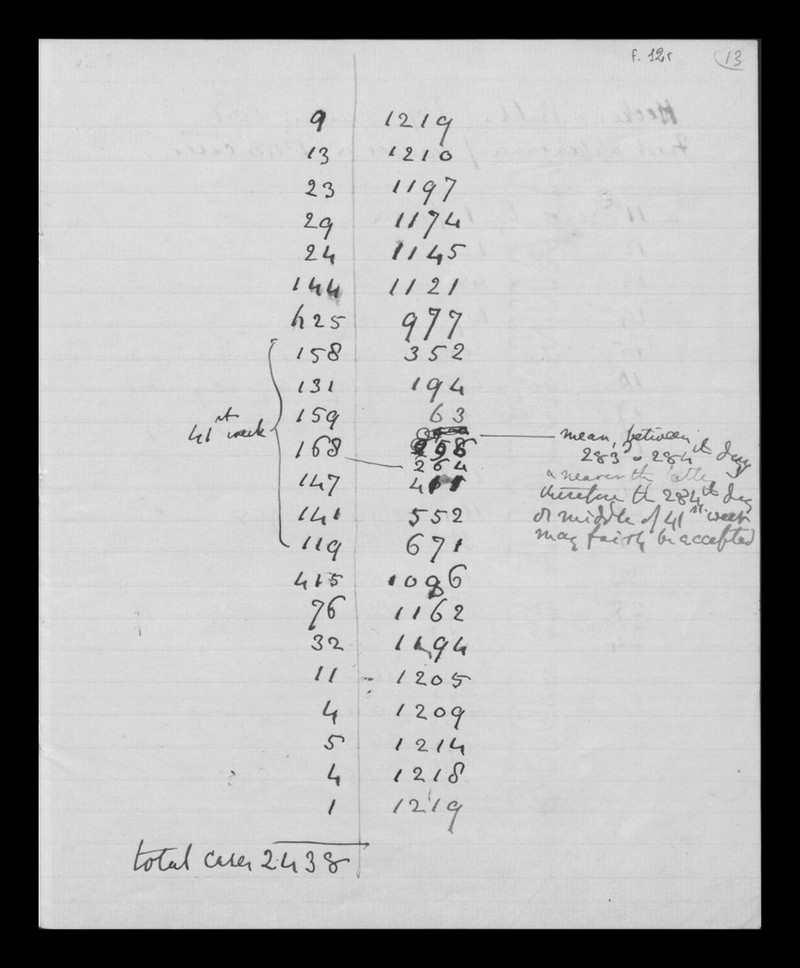 f. 12r 13
9 1219
13 1210
23 1197
29 1174
24 1145
144 1121
625 977
158 352
131 194
159 63
41st week
168 258
264
147 411
141 552
119 671
mean, between
283d & 284th day
& nearer the latter
therefore the 284th day
or middle of 41st week
may fairly be accepted
415 1086
76 1162
32 1194
11 1205
4 1209
5 1214
4 1218
1 1219
total cases 2438